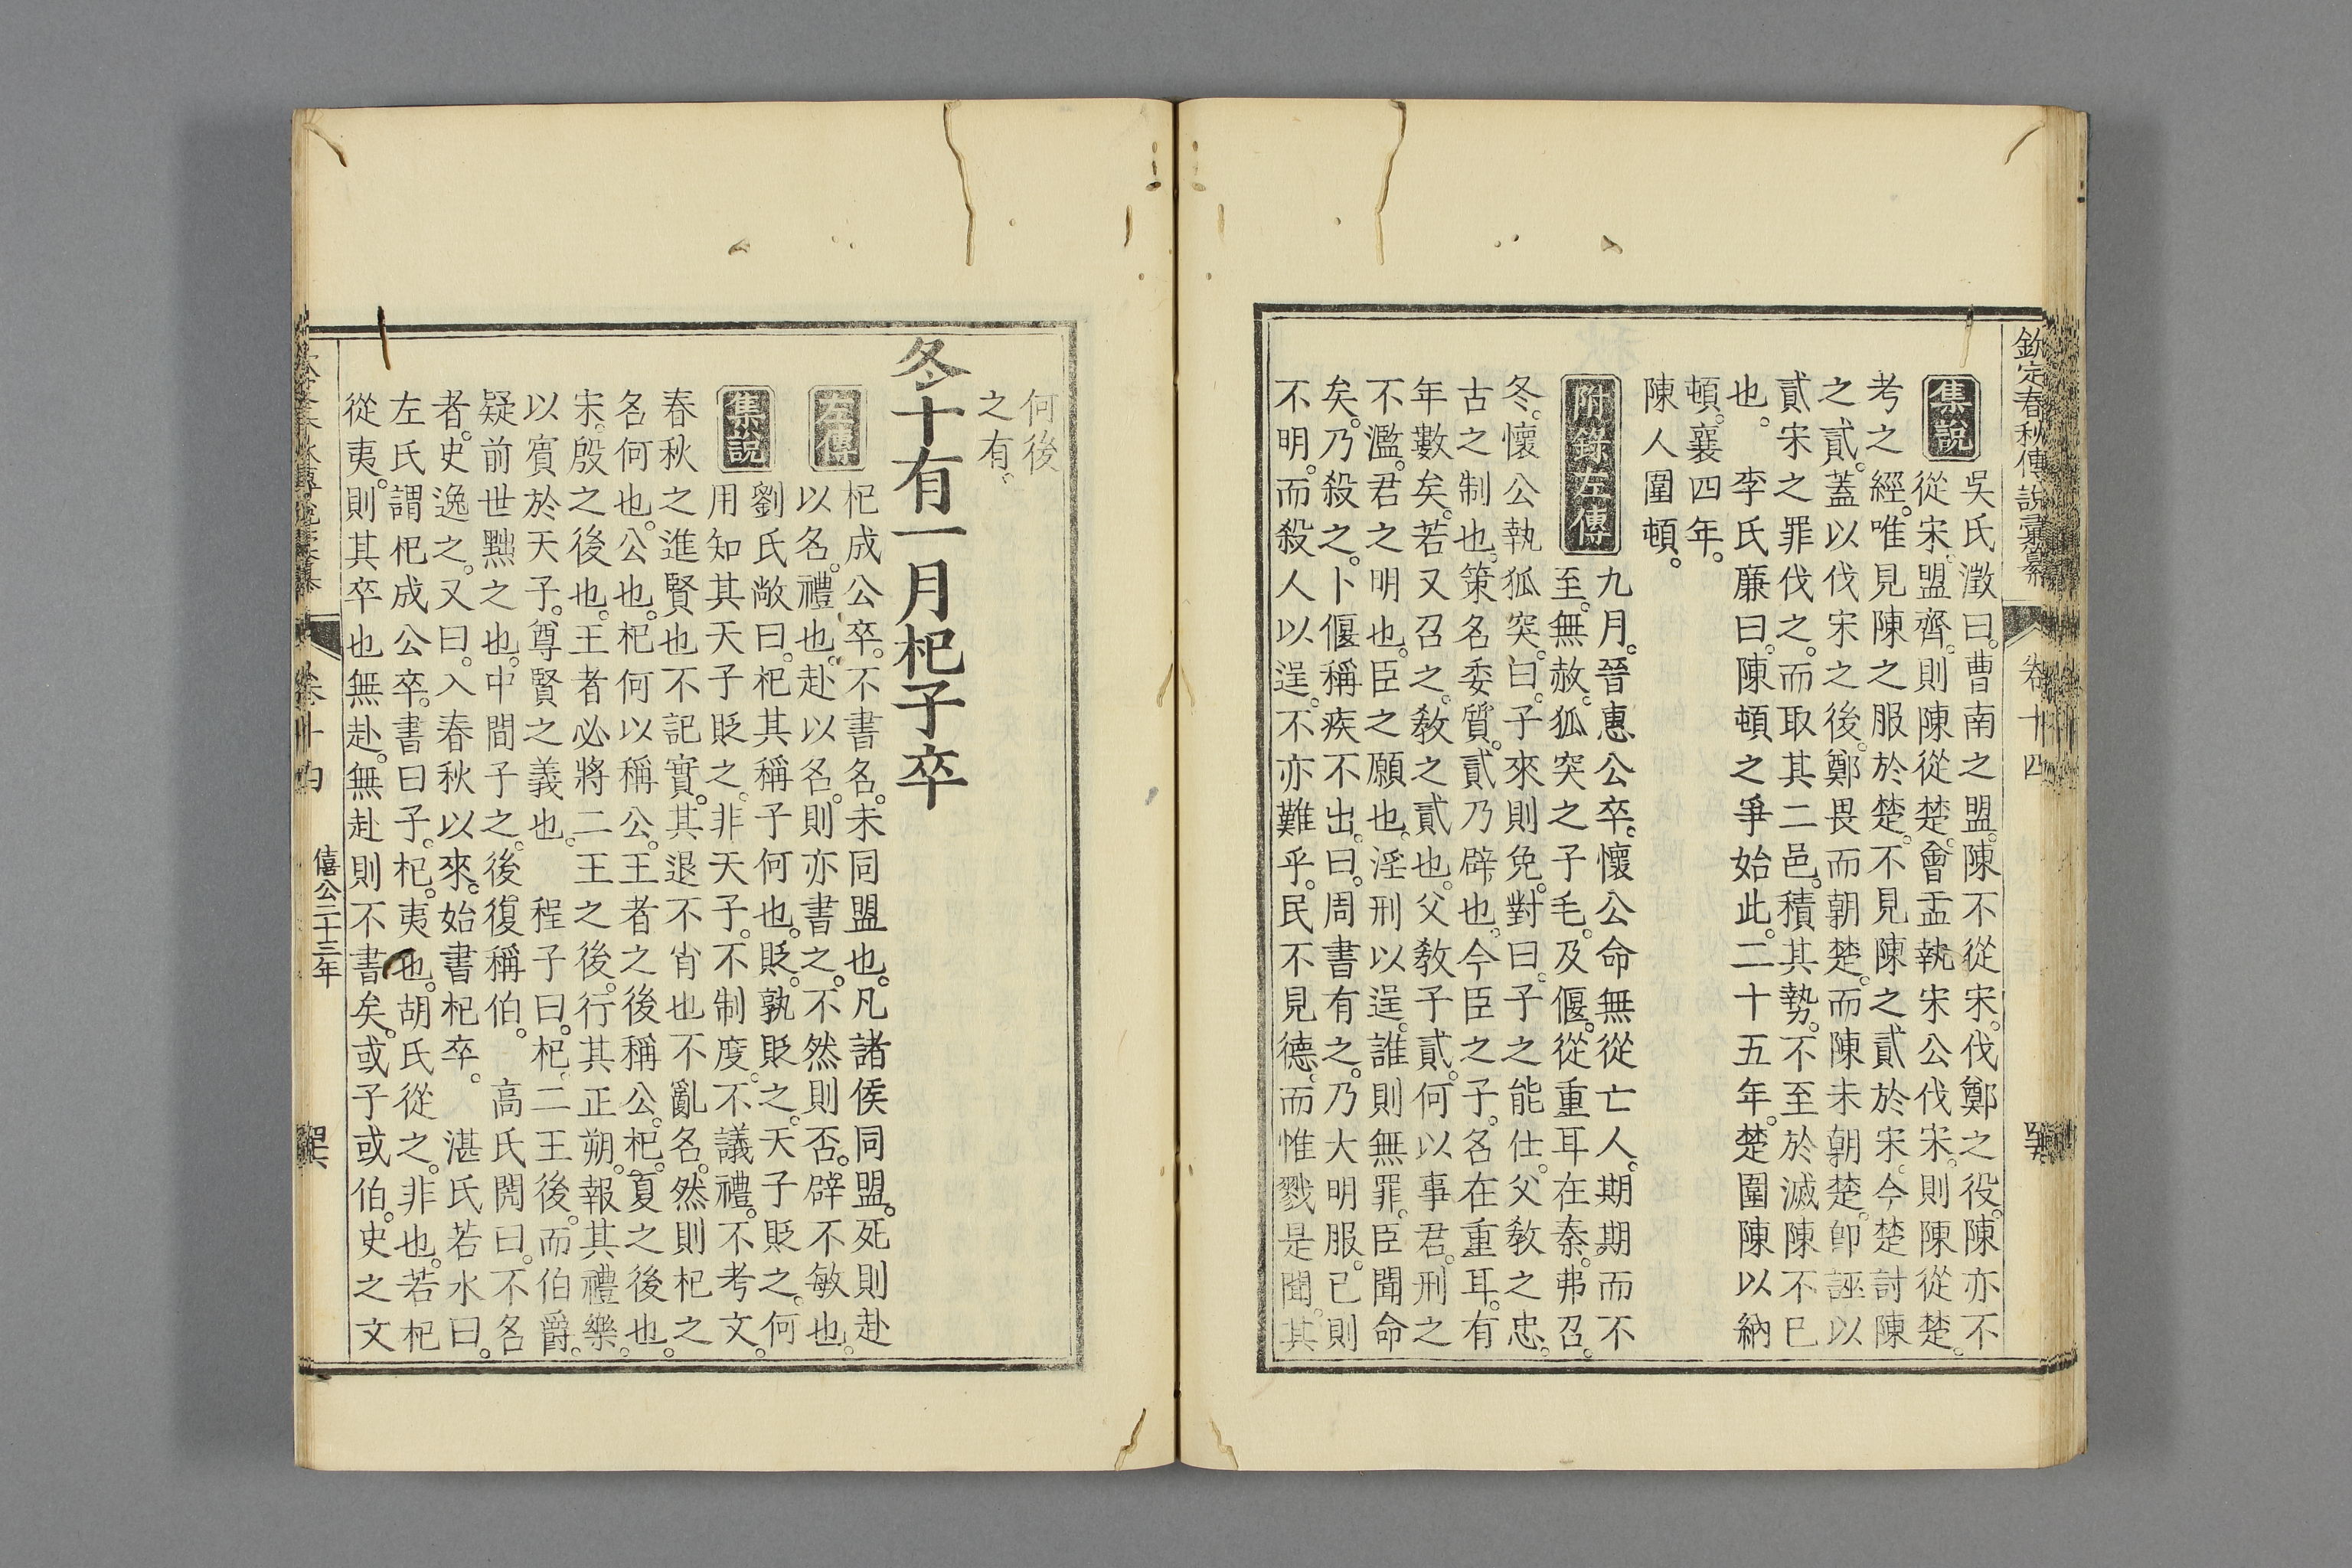 欽定春秋傳說彙纂 卷十四
集說 吳氏澂曰。曹南之盟。陳不從宋。伐鄭之役。陳亦不
從宋。盟齊。則陳從楚。會盂執宋公伐宋。則陳從楚。
考之經。唯見陳之服於楚。不見陳之貳於宋。今楚討陳
之貳。蓋以伐宋之後。鄭畏而朝楚。而陳未朝楚。卽誣以
貳宋之罪伐之。而取其二邑。積其勢。不至於滅陳不已
也。 李氏廉曰。陳頓之爭始此。二十五年。楚圍陳以納
頓。襄四年。
陳人圍頓。
附錄左傳 九月。晉惠公卒。懷公命無從亡人。期期而不
至。無赦。狐突之子毛。及偃。從重耳在秦。弗召。
冬。懷公執狐突。曰。子來則免。對曰。子之能仕。父敎之忠。
古之制也。策名委質。貳乃辟也。今臣之子。名在重耳。有
年數矣。若又召之。敎之貳也。父敎子貳。何以事君。刑之
不濫。君之明也。臣之願也。淫刑以逞。誰則無罪。臣聞命
矣。乃殺之。卜偃稱疾不出。曰。周書有之。乃大明服。已則
不明。而殺人以逞。不亦難乎。民不見德。而惟戮是聞。其
何後
之有。
冬十有一月杞子卒
左傳 杞成公卒。不書名。未同盟也。凡諸侯同盟。死則赴
以名。禮也。赴以名。則亦書之。不然則否。辟不敏也。
集說 劉氏敞曰。杞其稱子何也。貶。孰貶之。天子貶之。何
用知其天子貶之。非天子。不制度。不議禮。不考文。
春秋之進賢也不記實。其退不肖也不亂名。然則杞之
名何也。公也。杞何以稱公。王者之後稱公。杞。夏之後也。
宋。殷之後也。王者必將二王之後。行其正朔。報其禮樂。
以賔於天子。尊賢之義也。 程子曰。杞二王後。而伯爵。
疑前世黜之也。中間子之。後復稱伯。 高氏閌曰。不名
者。史逸之。又曰。入春秋以來。始書杞卒。 湛氏若水曰。
左氏謂杞成公卒。書曰子。杞。夷也。胡氏從之。非也。若杞
從夷。則其卒也無赴。無赴則不書矣。或子或伯。史之文
僖公二十三年